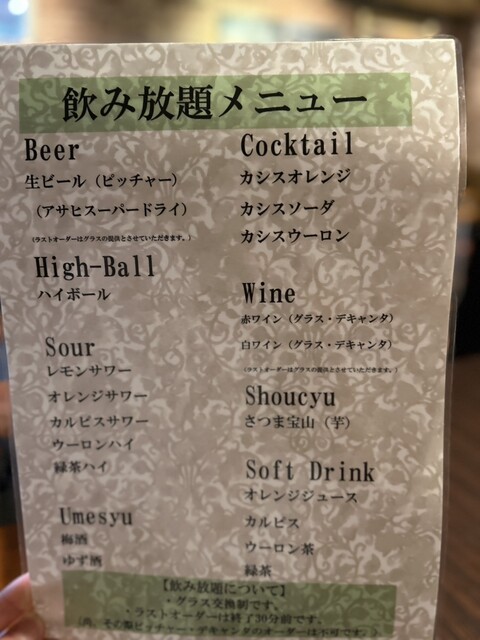 飲み放題メニュー
Beer
生ビール（ピッチャー）
（アサヒスーパードライ）
（ラストオーダーはグラスの提供とさせていただきます。）
High-Ball
ハイボール
Sour
レモンサワー
オレンジサワー
カルピスサワー
ウーロンハイ
緑茶ハイ
Umesyu
梅酒
ゆず酒
Cocktail
カシスオレンジ
カシスソーダ
カシスウーロン
Wine
赤ワイン（グラス・デキャンタ）
白ワイン（グラス・デキャンタ）
（ラストオーダーはグラスの提供とさせていただきます。）
Shoucyu
さつま宝山（芋）
Soft Drink
オレンジジュース
カルピス
ウーロン茶
緑茶
【飲み放題について】
・グラス交換制です。
・ラストオーダーは終了30分前です。
（尚、その際ピッチャー・デキャンタのオーダーは不可です。）